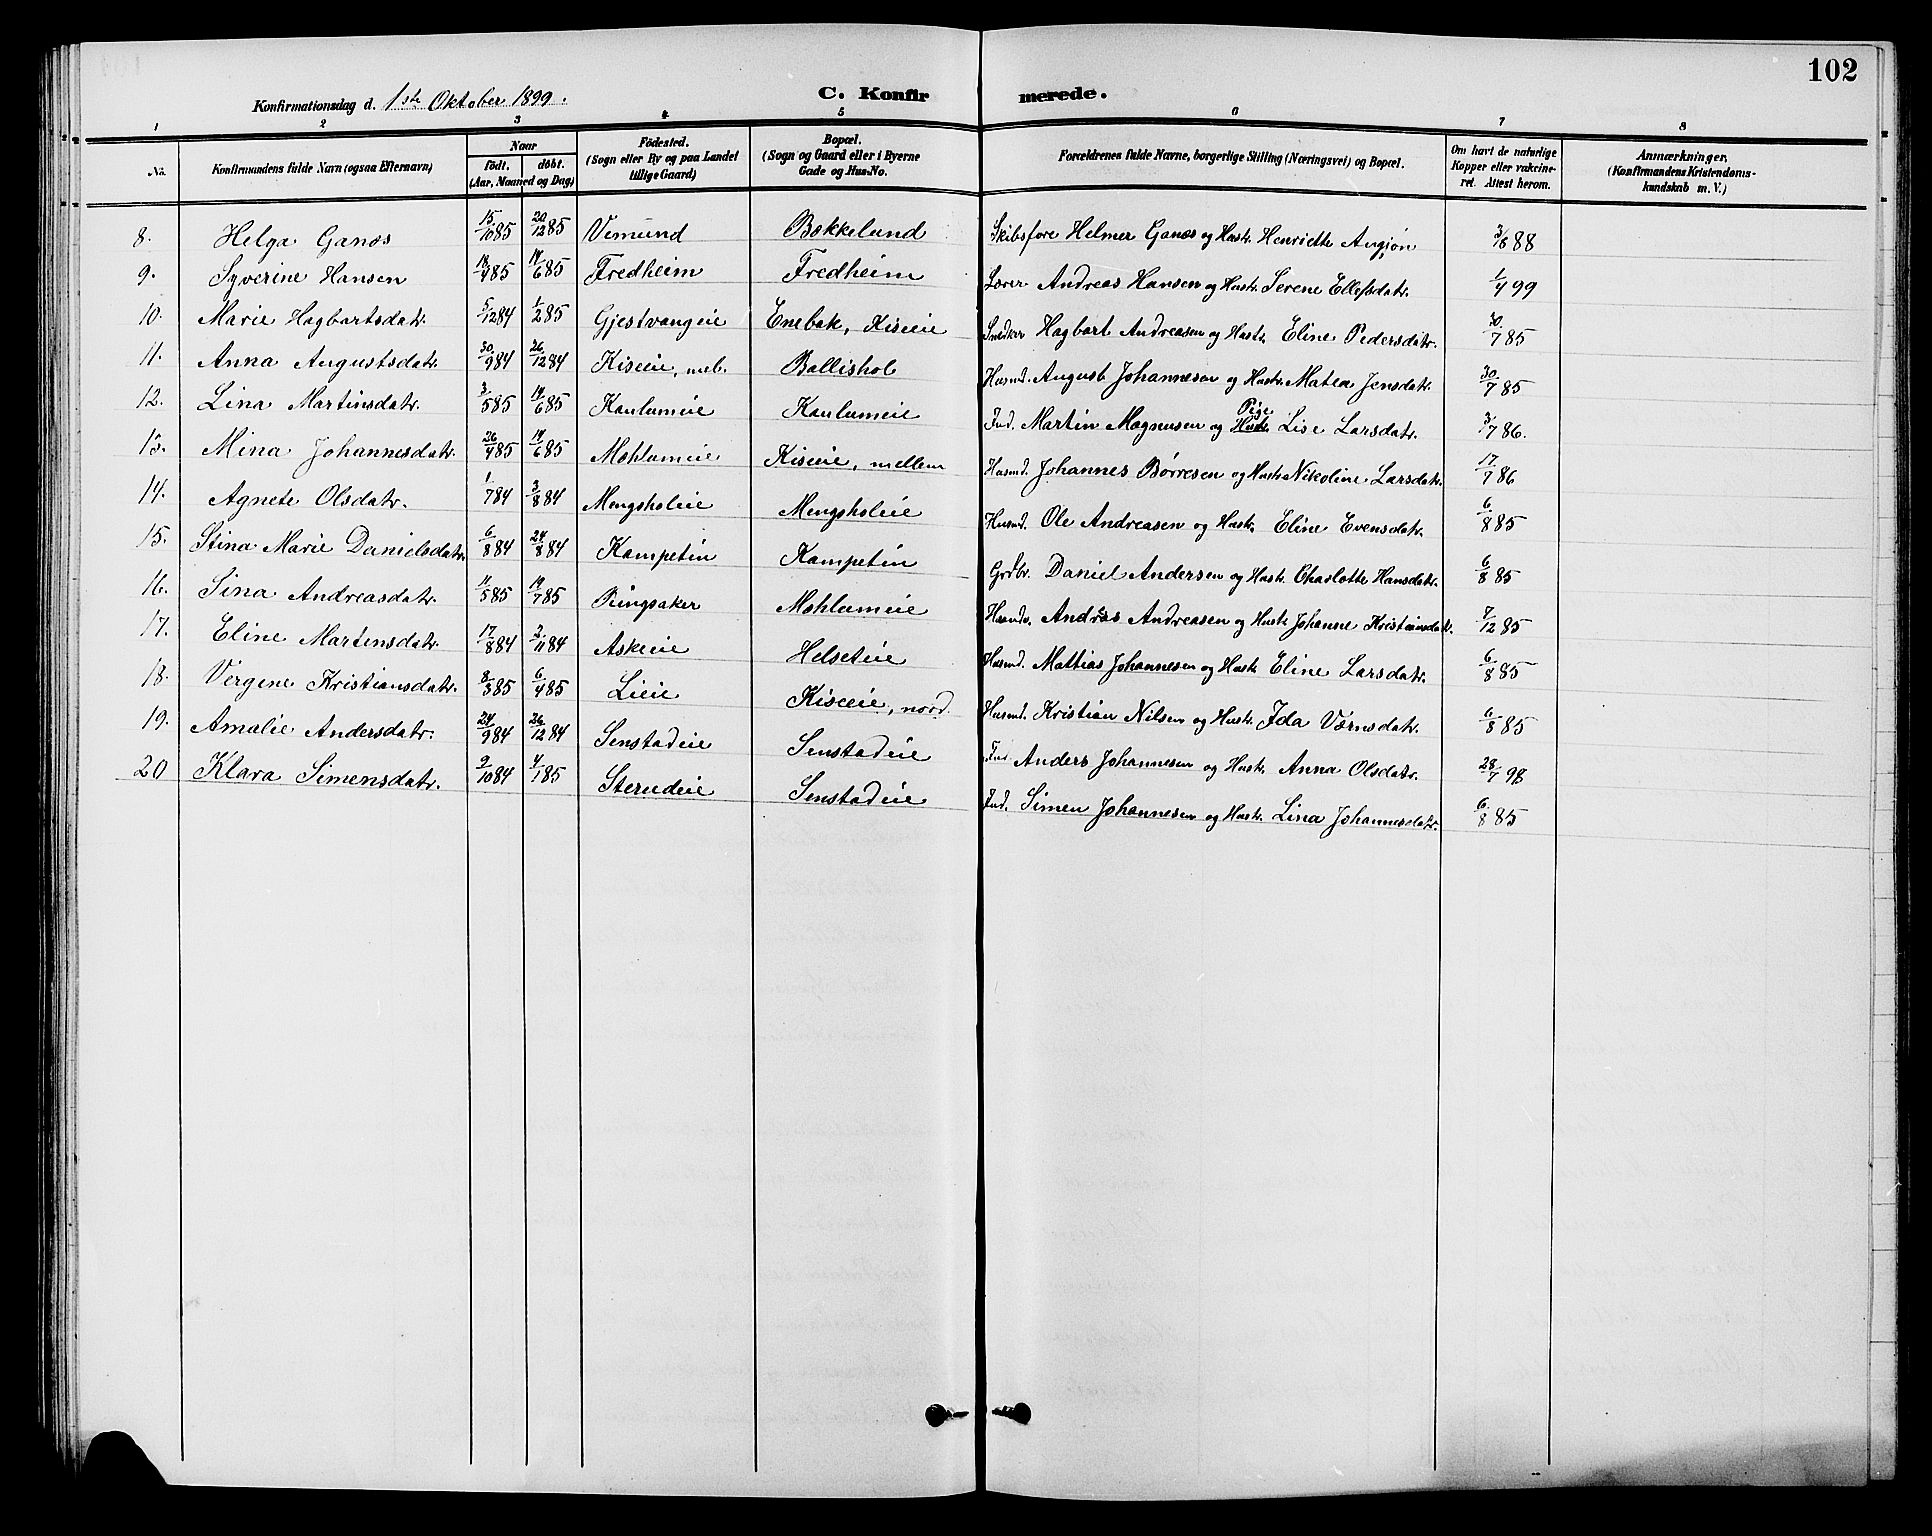 102
Konfirmationsdag d. 1ste Oktober 1899.
C. Konfirmerede.
1 2 3 4 5 6 7 8
No. Konfirmandens fulde Navn (ogsaa Efternavn) Naar födt. döbt. (Aar, Maaned og Dag) Födested. (Sogn eller By og paa Landet tillige Gaard) Bopæl. (Sogn og Gaard eller i Byerne Gade og Hus-No. Forældrenes fulde Navne, borgerlige Stilling (Næringsvei) og Bopæl. Om havt de naturlige Kopper eller vakcineret. Attest herom. Anmærkninger, (Konfirmandens Kristendomskundskab m. V.)
8. Helga Ganæs 15/10 85 20/12 85 Vemund Bakkelund Skibsføre Helmer Ganæs og Hustr. Henriette 3/6 88
9. Syverine Hansen 18/4 85 14/6 85 Fredheim Fredheim Lærer Andreas Hansen og Hustr. Serene Ellefsdatr. 1/4 99
10. Marie Hagbartsdatr. 5/12 84 1/2 85 Gjestvangeie Enebak, Kiseeie Snedker Hagbart Andreasen og Hustr. Eline Pedersdatr. 30/7 85
11. Anna Augustsdatr. 30/9 84 26/12 84 Kiseeie, mel. Ballishol Husmd. August Johannesen og Hustr. Matea Jensdatr. 30/7 85
12. Lina Martinsdatr. 3/5 85 14/6 85 Kaulumeie Kaulumeie Ind. Martin Magnusen og Hustr. Pige Lise Larsdatr. 3/7 86.
13. Mina Johannesdatr. 26/4 85 14/6 85 Mohlumeie Kiseeie, mellem Husmd. Johannes Børresen og Hustr. Nikoline Larsdatr. 17/7 86
14. Agnete Olsdatr. 1/7 84 3/8 84 Mengsholeie Mengsholeie Husmd. Ole Andreasen og Hustr. Eline Evensdatr. 6/8 85
15. Stina Marie Danielsdatr. 6/8 84 24/8 84 Kampetin Kampetin Grdbr. Daniel Andersen og Hustr. Charlotte Hansdatr. 6/8 85
16. Sina Andreasdatr. 11/5 85 19/7 85 Ringsaker Mohlumeie Husmd. Andreas Andreasen og Hustr. Johanne Kristiansdatr. 7/12 85
17. Eline Martinsdatr. 17/8 84 2/11 84 Askeie Helseteie Husmd. Mattias Johannesen og Hustr. Eline Larsdatr. 6/8 85
18. Vergene Kristiansdatr. 8/3 85 6/4 85 Lieie Kiseeie, nord. Husmd. Kristian Nilsen og Hustr. Ida Værnsdatr. 6/8 85
19. Amalie Andersdatr. 24/9 84 26/12 84 Senstadeie Senstadeie Ind Anders Johannesen og Hustr. Anna Olsdatr. 28/7 98
20 Klara Simensdatr. 9/10 84 4/1 85 Sterudeie Senstadeie Ind. Simen Johannesen og Hustr. Lina Johannesdatr. 6/8 85